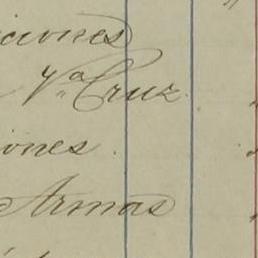 iciones
Va Cruz
iones.
Armas